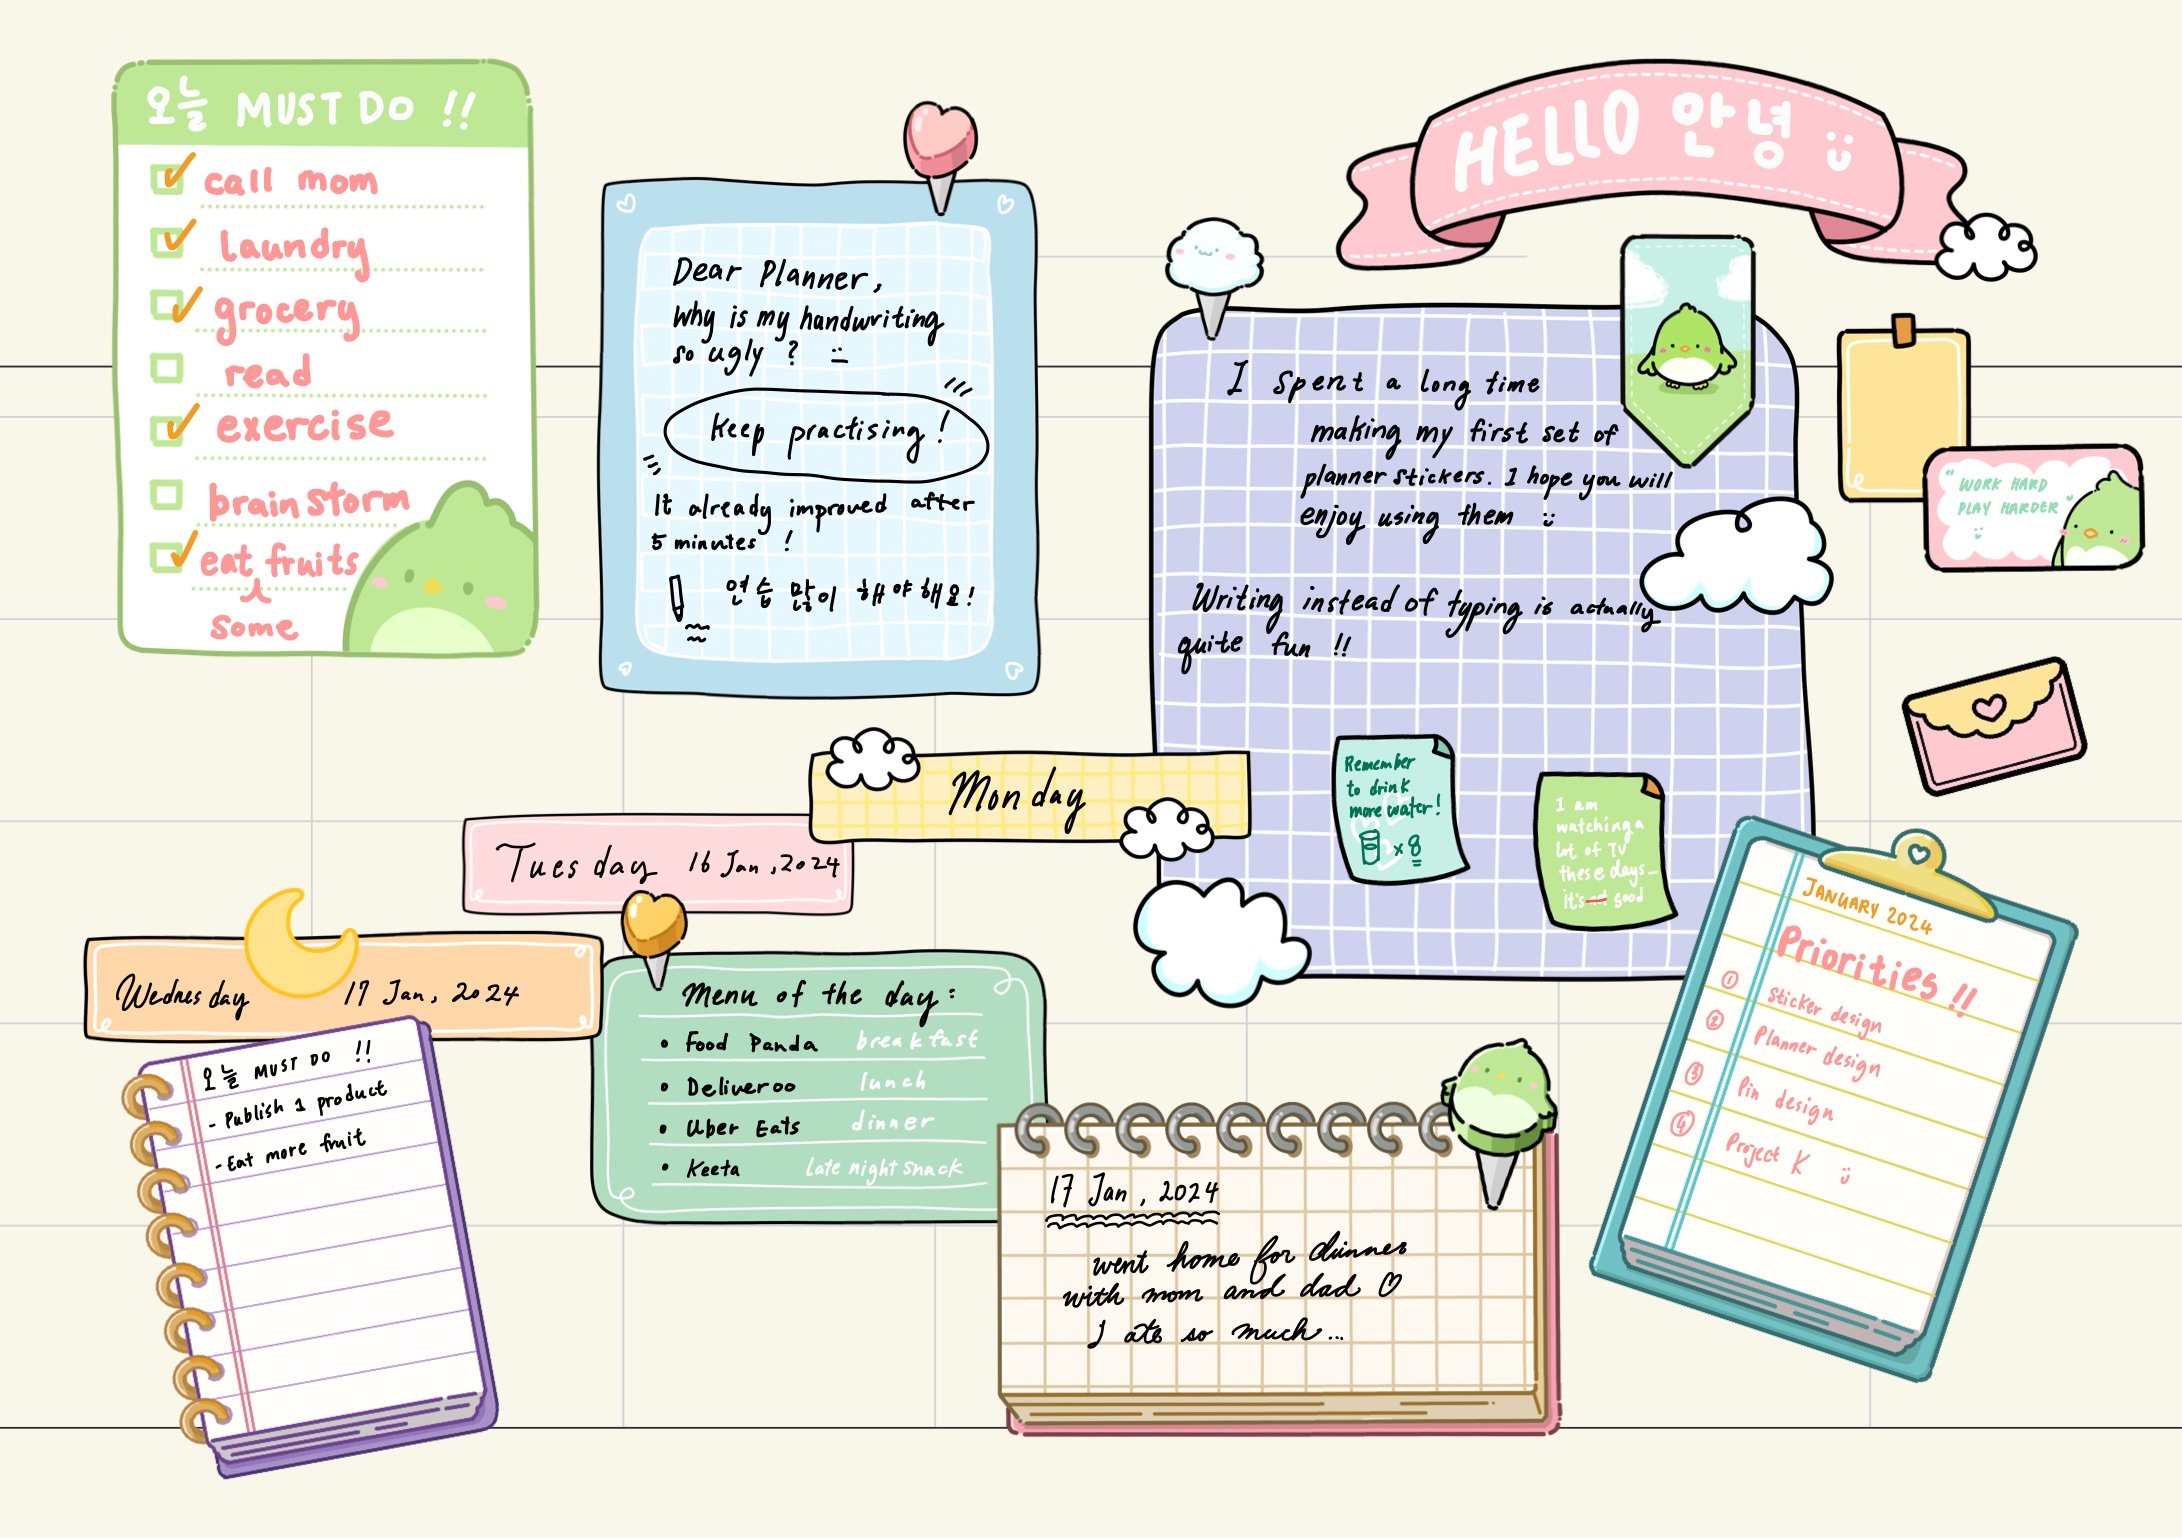 오늘 MUST DO !!
call mom
laundry
grocery
read
exercise
brainstorm
eat fruits
some
Dear Planner,
Why is my handwriting
so ugly ?
Keep practising !
It already improved after
5 minutes !
연습 많이 해야해요!
HELLO 안녕
I spent a long time
making my first set of
planner stickers. I hope you will
enjoy using them
Writing instead of typing is actually
quite fun !!
Remember
to drink
more water!
x 8
I am
watching a
lot of TV
these days
it's not good
"WORK HARD
PLAY HARDER"
Monday
Tuesday 16 Jan, 2024
Wednesday 17 Jan, 2024
오늘 MUST DO !!
- Publish 1 product
- Eat more fruit
Menu of the day :
• Food Panda breakfast
• Deliveroo lunch
• Uber Eats dinner
• Keeta late night snack
17 Jan, 2024
went home for dinner
with mom and dad ♡
I ate so much...
JANUARY 2024
Priorities !!
① Sticker design
② Planner design
③ Pin design
④ Project K